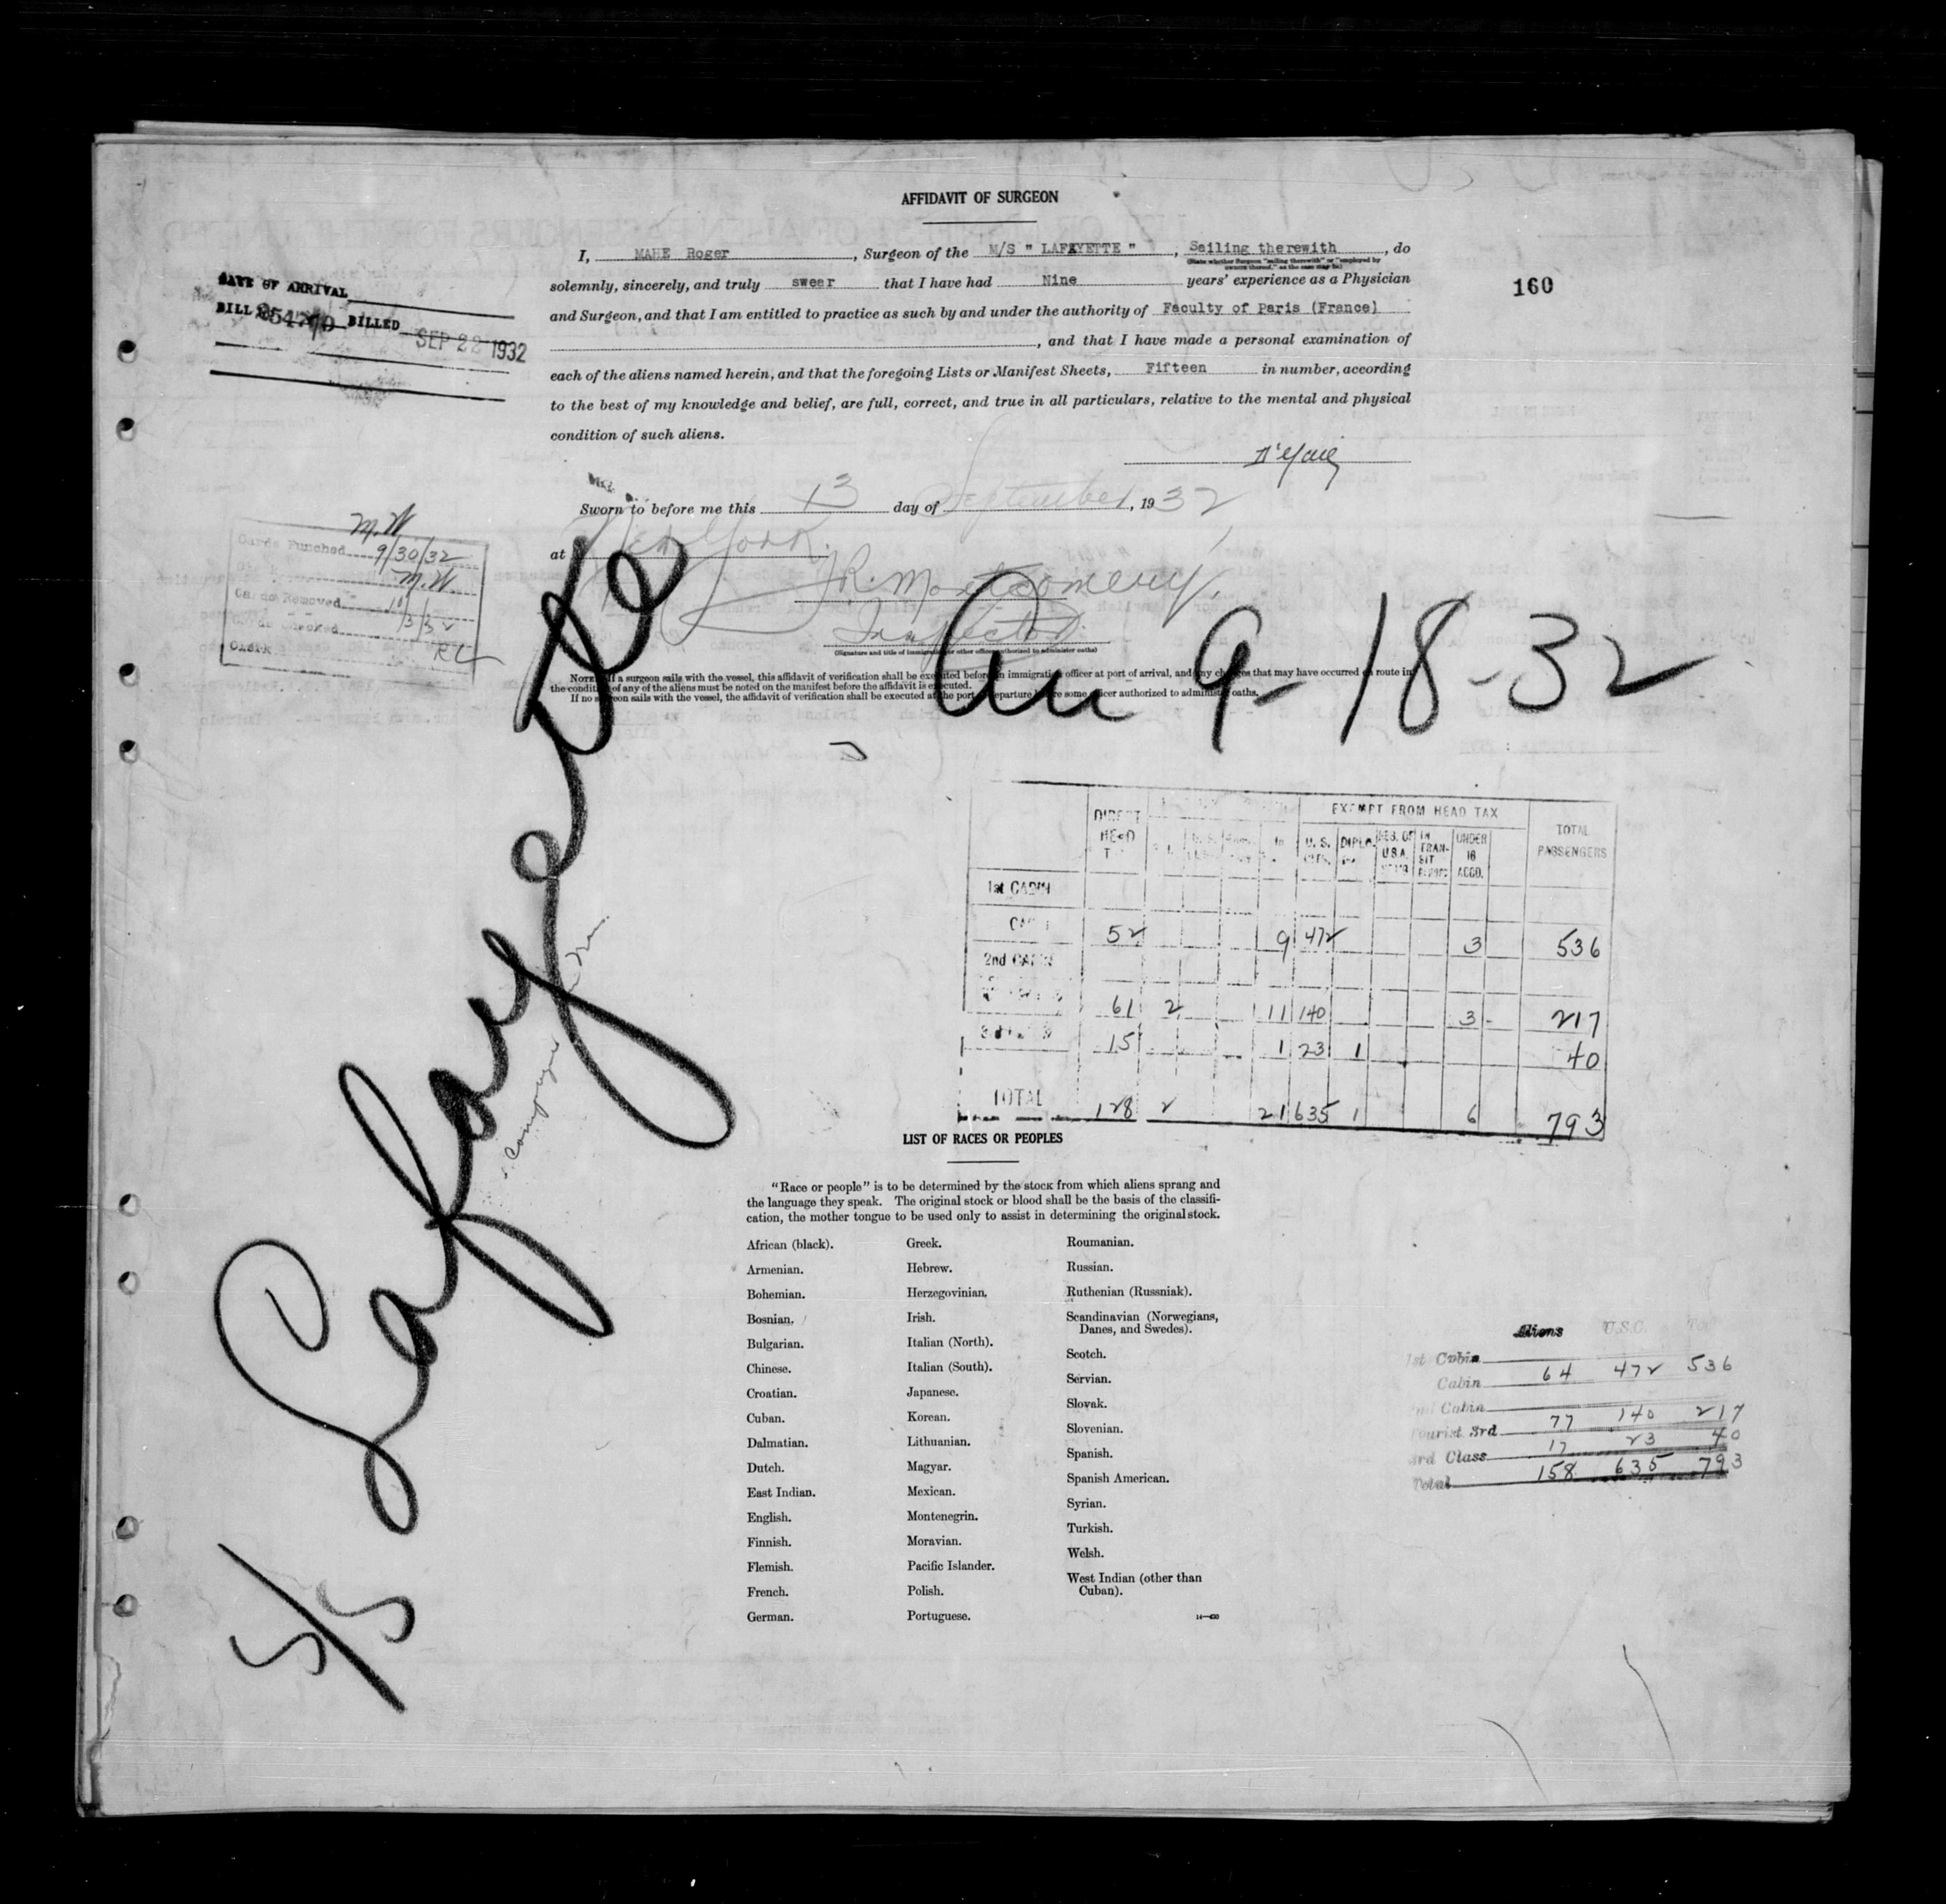 AFFIDAVIT OF SURGEON
I, MAHE Roger, Surgeon of the M/S " LAFAYETTE ", Sailing therewith, do
(State whether Surgeon "sailing therewith" or "employed by
owners thereof," as the case may be)
solemnly, sincerely, and truly swear that I have had Nine years' experience as a Physician
and Surgeon, and that I am entitled to practice as such by and under the authority of Faculty of Paris (France)
, and that I have made a personal examination of
each of the aliens named herein, and that the foregoing Lists or Manifest Sheets, Fifteen in number, according
to the best of my knowledge and belief, are full, correct, and true in all particulars, relative to the mental and physical
condition of such aliens.
160
DATE OF ARRIVAL
BILL BILLED SEP 22 1932
Sworn to before me this 13 day of September, 1932
at New York.
J.R. Montgomery,
Inspector
(Signature and title of immigration or other officer authorized to administer oaths)
NOTE.—If a surgeon sails with the vessel, this affidavit of verification shall be executed before an immigration officer at port of arrival, and any changes that may have occurred en route in
the condition of any of the aliens must be noted on the manifest before the affidavit is executed.
If no surgeon sails with the vessel, the affidavit of verification shall be executed at the port of departure before some officer authorized to administer oaths.
M.W
Cards Punched 9/30/32
Clerk M.W.
Cards Removed 10/3/32
Cards Checked
Clerk RL
S/S Lafayette
Arr 9-18-32
DIRECT HEAD TAX
EXEMPT FROM HEAD TAX
TOTAL PASSENGERS
U. S. DIPLO. RES. OF U.S.A. IN TRANSIT UNDER 16 ACCO.
1st CABIN
CABIN 52 9 472 3 536
2nd CABIN
61 2 11 140 3 217
15 1 23 1 40
TOTAL 128 2 21 635 1 6 793
LIST OF RACES OR PEOPLES
"Race or people" is to be determined by the stock from which aliens sprang and
the language they speak. The original stock or blood shall be the basis of the classifi-
cation, the mother tongue to be used only to assist in determining the original stock.
African (black).
Armenian.
Bohemian.
Bosnian.
Bulgarian.
Chinese.
Croatian.
Cuban.
Dalmatian.
Dutch.
East Indian.
English.
Finnish.
Flemish.
French.
German.
Greek.
Hebrew.
Herzegovinian.
Irish.
Italian (North).
Italian (South).
Japanese.
Korean.
Lithuanian.
Magyar.
Mexican.
Montenegrin.
Moravian.
Pacific Islander.
Polish.
Portuguese.
Roumanian.
Russian.
Ruthenian (Russniak).
Scandinavian (Norwegians,
Danes, and Swedes).
Scotch.
Servian.
Slovak.
Slovenian.
Spanish.
Spanish American.
Syrian.
Turkish.
Welsh.
West Indian (other than
Cuban).
Aliens U.S.C. Total
1st Cabin
Cabin 64 472 536
2nd Cabin
Tourist 3rd 77 140 217
3rd Class 17 23 40
Total 158 635 793